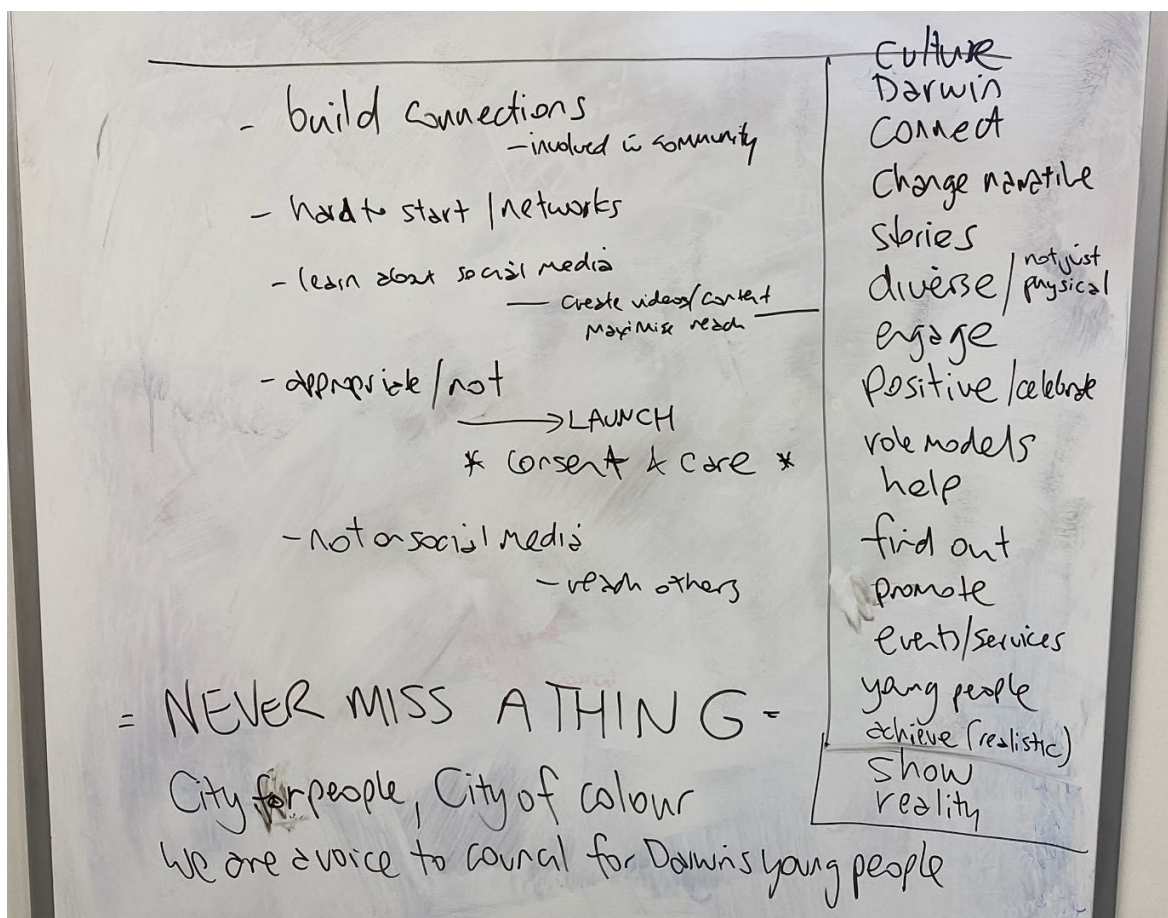 - build connections
- involved in community
- hard to start / networks
- learn about social media
- create videos/content
maximise reach
- appropriate / not
→ LAUNCH
* consent & care *
- not on social media
- reach others
= NEVER MISS A THING =
City for people, City of colour
We are a voice to council for Darwins young people
culture
Darwin
connect
change narrative
stories
diverse / not just physical
engage
positive / celebrate
role models
help
find out
promote
events/services
young people
achieve (realistic)
show
reality